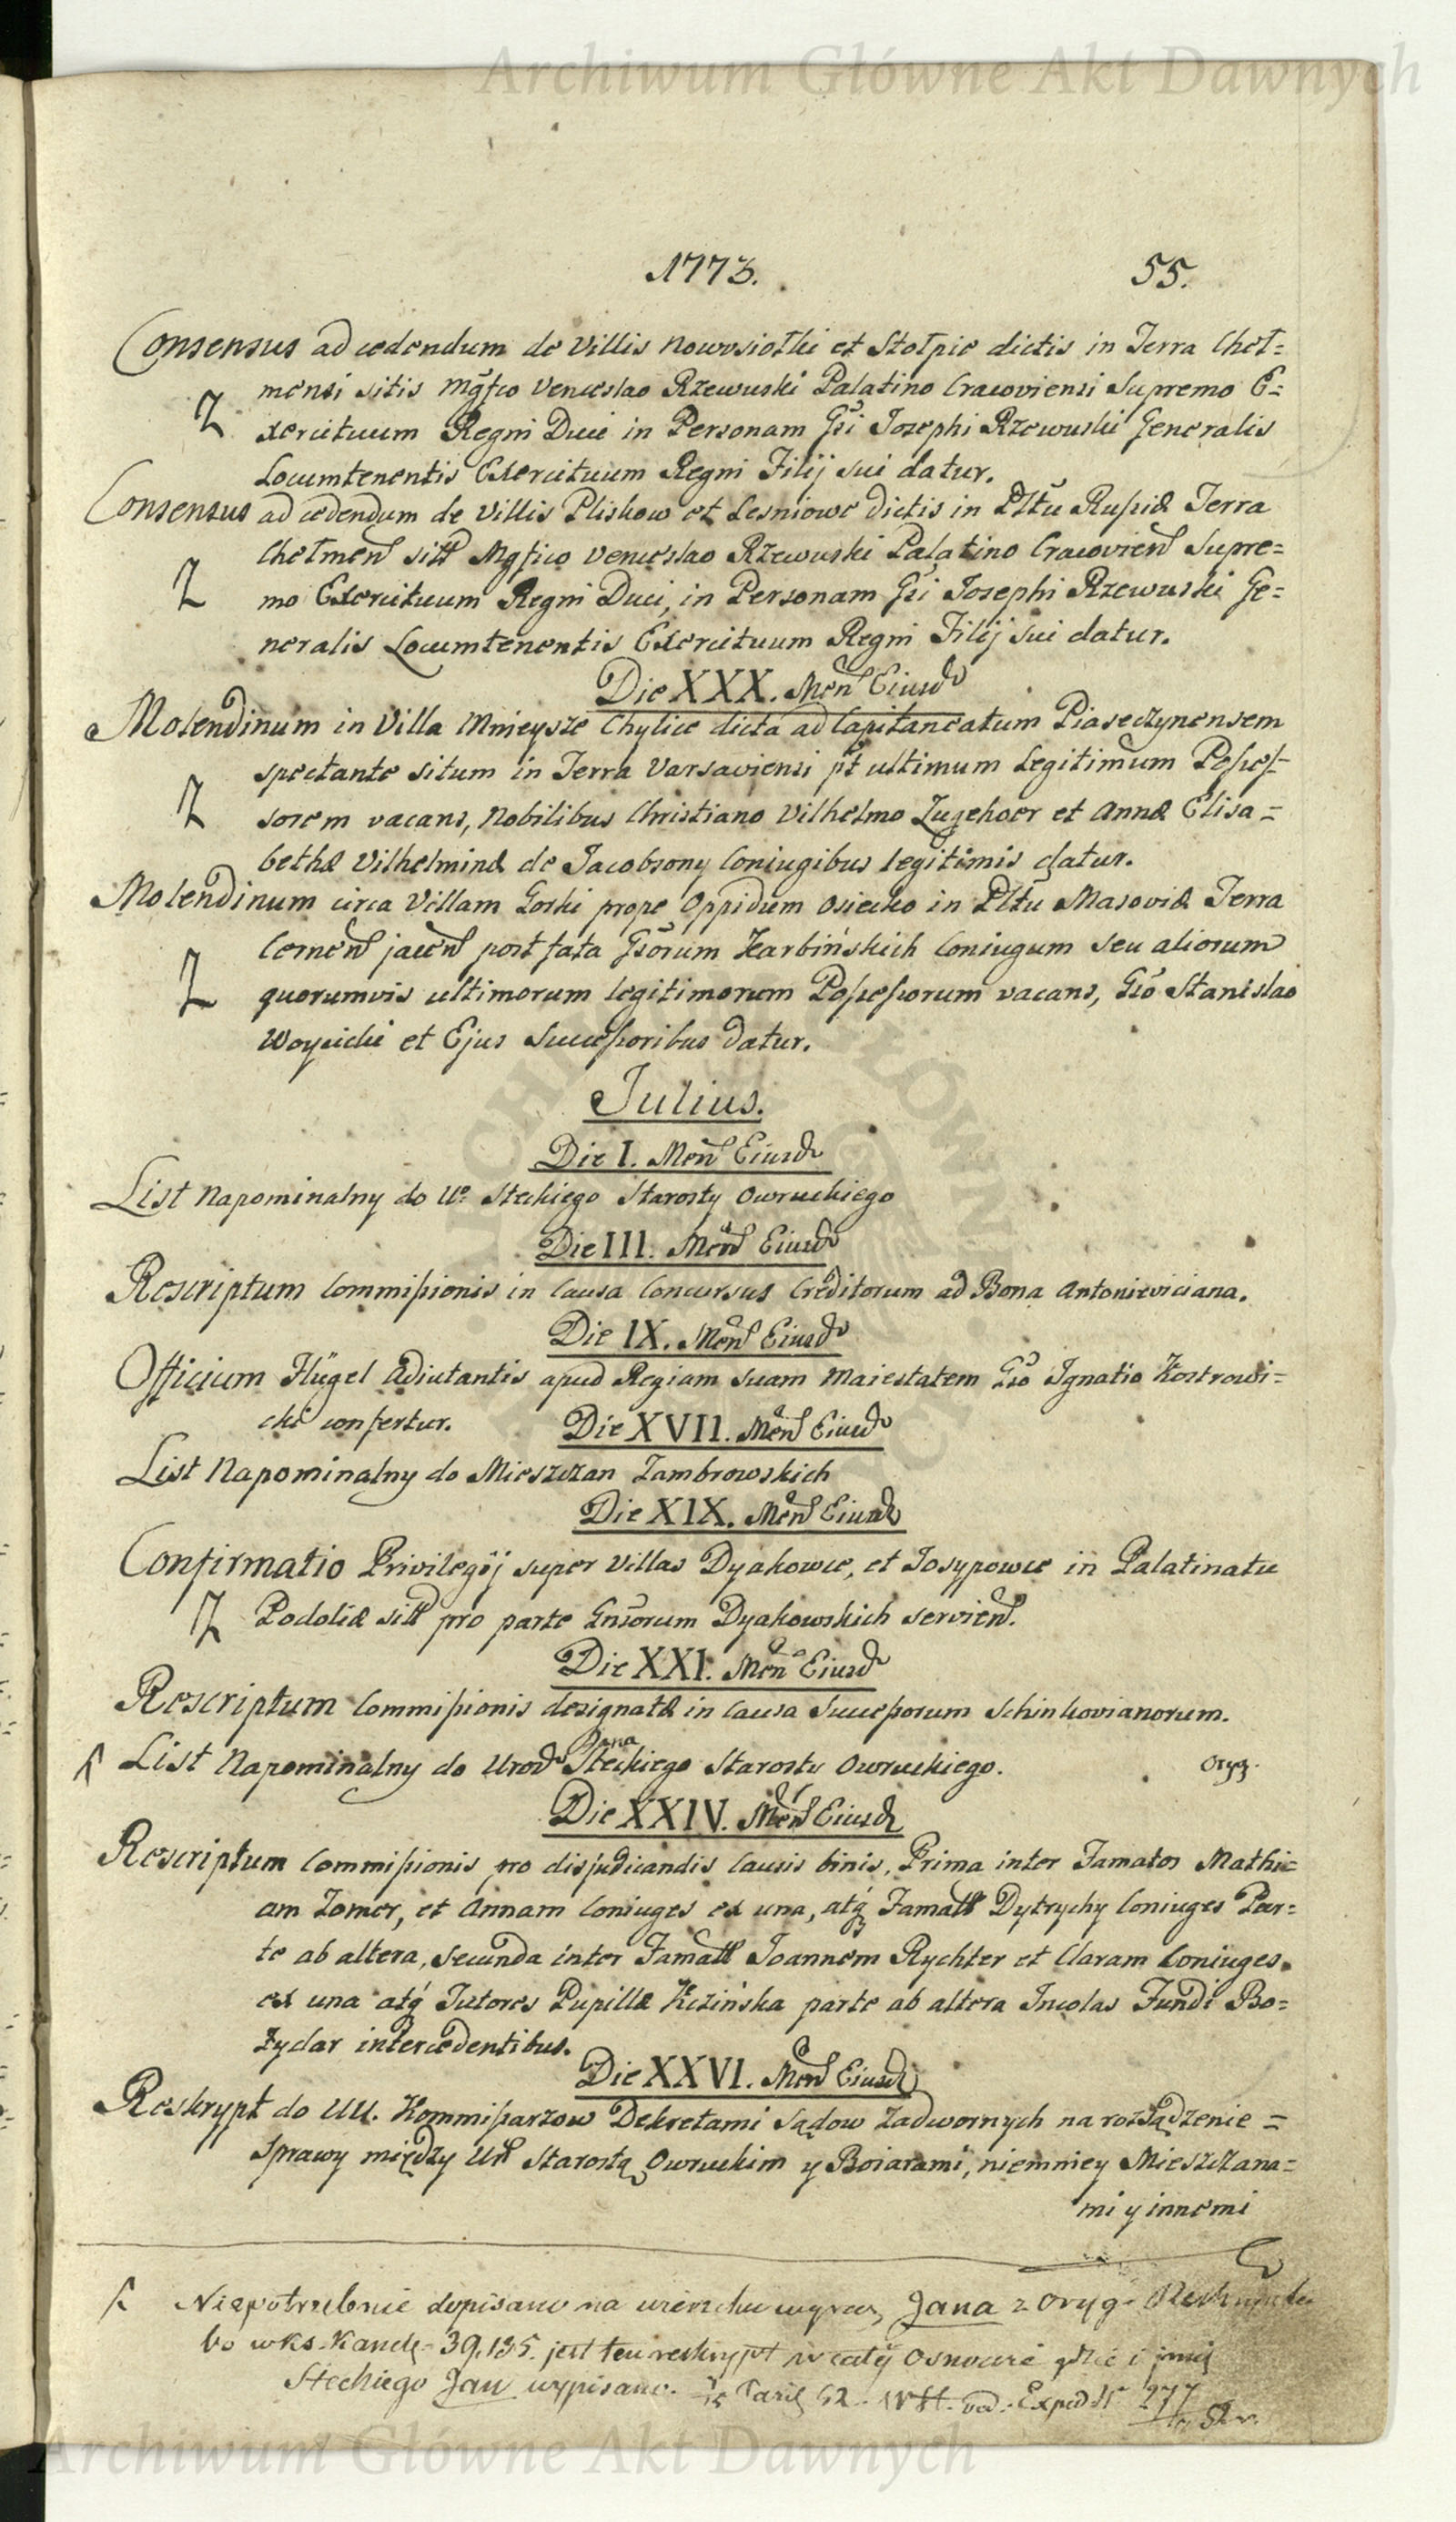 Archiwum Główne Akt Dawnych
1773. 55.
Consensus ad cedendum de Villis Nowosiołki et Stołpie dictis in Terra Cheł=
mensi sitis Mgfco Venceslao Rzewuski Palatino Cracoviensi Supremo E=
xercituum Regni Duci in Personam Gsi Josephi Rzewuski Generalis
Locumtenentis Exercituum Regni Filij sui datur.
Consensus ad cedendum de Villis Pliskow et Lesniowe dictis in Pltu Russiæ Terra
Chełmen sitt Mgfico Venceslao Rzewuski Palatino Cracovien Supre=
mo Exercituum Regni Duci, in Personam Gsi Josephi Rzewuski Ge=
neralis Locumtenentis Exercituum Regni Filij sui datur.
Die XXX. Men Eiusd
Molendinum in Villa Mnieysze Chylice dicta ad Capitaneatum Piaseczynensem
spectante situm in Terra Varsaviensi pt ultimum Legitimum Posses=
sorem vacans, Nobilibus Christiano Vilhelmo Zugehoer et Annæ Elisa=
bethæ Vilhelminæ de Jacobsony Coniugibus legitimis datur.
Molendinum circa Villam Gorki prope Oppidum Osiecko in Pltu Masoviæ Terra
Cernen jacen post fata Gsorum Karbińskich Coniugum seu aliorum
quorumvis ultimorum legitimorum Possessorum vacans, Gso Stanislao
Woycicki et Ejus Successoribus datur.
Julius.
Die I. Men Eiusd
List Napominalny do Uo Steckiego Starosty Owruckiego
Die III. Men Eiusd
Rescriptum Commissionis in Causa Concursus Creditorum ad Bona Antonieviciana.
Die IX. Men Eiusd
Officium Flügel Adiutantis apud Regiam Suam Maiestatem Gso Ignatio Kostrowi=
cki confertur.
Die XVII. Men Eiusd
List Napominalny do Mieszczan Zambrowskich
Die XIX. Men Eiusd
Confirmatio Privilegij super Villas Dyakowce, et Josypowce in Palatinatu
Podoliæ sitt pro parte Gnsorum Dyakowskich servien.
Die XXI. Men Eiusd
Rescriptum Commissionis designatæ in Causa Successorum Schinkovianorum.
Jana
List Napominalny do Urod Steckiego Starosty Owruckiego. Oryg.
Die XXIV. Men Eiusd
Rescriptum Commissionis pro disjudicandis Causis binis, Prima inter Famatos Mathi=
am Zomer, et Annam Coniuges ex una, atq Famatt Dytrychy Coniuges Par=
te ab altera, Secunda inter Famatt Joannem Rychter et Claram Coniuges
ex una atq Tutores Pupillæ Kczińska parte ab altera Incolas Fundi Bo=
żydar intercedentibus.
Die XXVI. Men Eiusd
Reskrypt do UU. Kommissarzow Dekretami Sądow Zadwornych na rozsądzenie =
Sprawy między Ur Starostą Owruckim y Boiarami, niemniey Mieszczana=
mi y innemi
Niepotrzebnie dopisano na wierzchu wyraz Jana z Oryg.
bo w Ks. Kancl. 39. 185. jest ten reskrypt w całej Osnowie gdzie i imię
Steckiego Jan wypisano. Exped N 277
Archiwum Główne Akt Dawnych